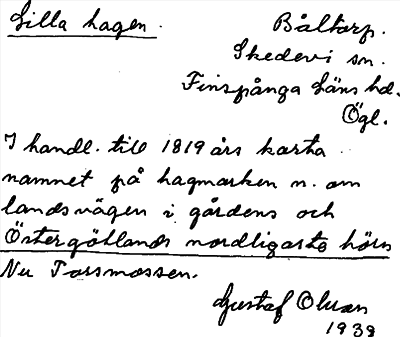 Lilla hagen.
Båltorp.
Skedevi sn.
Finspånga Läns hd.
Ögl.
I handl. till 1819 års karta
namnet på hagmarken n. om
landsvägen i gårdens och
Östergötlands nordligaste hörn
Nu Torsmossen.
Gustaf Olsson
1938